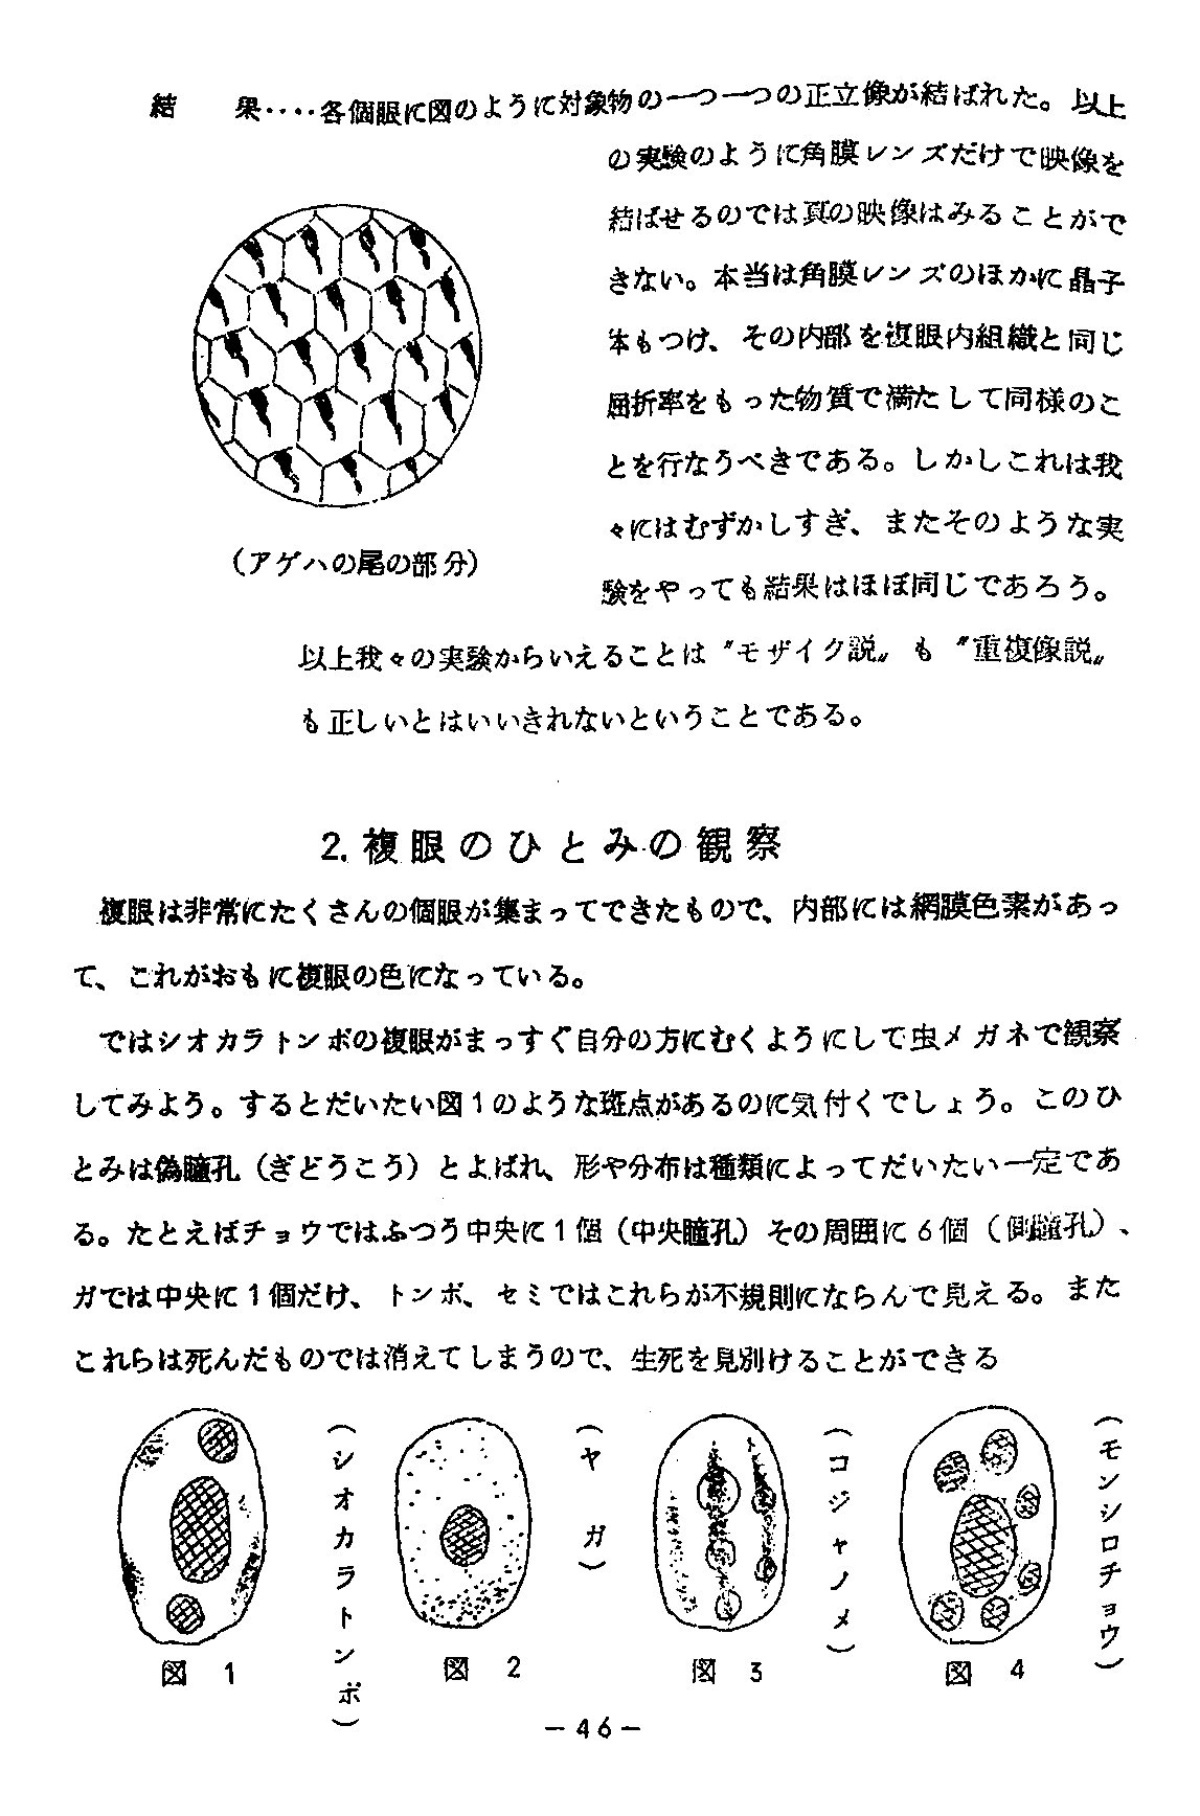 結　果‥‥各個眼に図のように対象物の一つ一つの正立像が結ばれた。以上
の実験のように角膜レンズだけで映像を
結ばせるのでは真の映像はみることがで
きない。本当は角膜レンズのほかに晶子
体もつけ、その内部を複眼内組織と同じ
屈折率をもった物質で満たして同様のこ
とを行なうべきである。しかしこれは我
々にはむずかしすぎ、またそのような実
験をやっても結果はほぼ同じであろう。
(アゲハの尾の部分)
以上我々の実験からいえることは〝モザイク説〟も〝重複像説〟
も正しいとはいいきれないということである。
2.複眼のひとみの観察
複眼は非常にたくさんの個眼が集まってできたもので、内部には網膜色素があっ
て、これがおもに複眼の色になっている。
ではシオカラトンボの複眼がまっすぐ自分の方にむくようにして虫メガネで観察
してみよう。するとだいたい図1のような斑点があるのに気付くでしょう。このひ
とみは偽瞳孔（ぎどうこう）とよばれ、形や分布は種類によってだいたい一定であ
る。たとえばチョウではふつう中央に1個（中央瞳孔）その周囲に6個（側瞳孔）、
ガでは中央に1個だけ、トンボ、セミではこれらが不規則にならんで見える。また
これらは死んだものでは消えてしまうので、生死を見別けることができる
(シオカラトンボ)
図 1
(ヤガ)
図 2
(コジャノメ)
図 3
(モンシロチョウ)
図 4
－46－